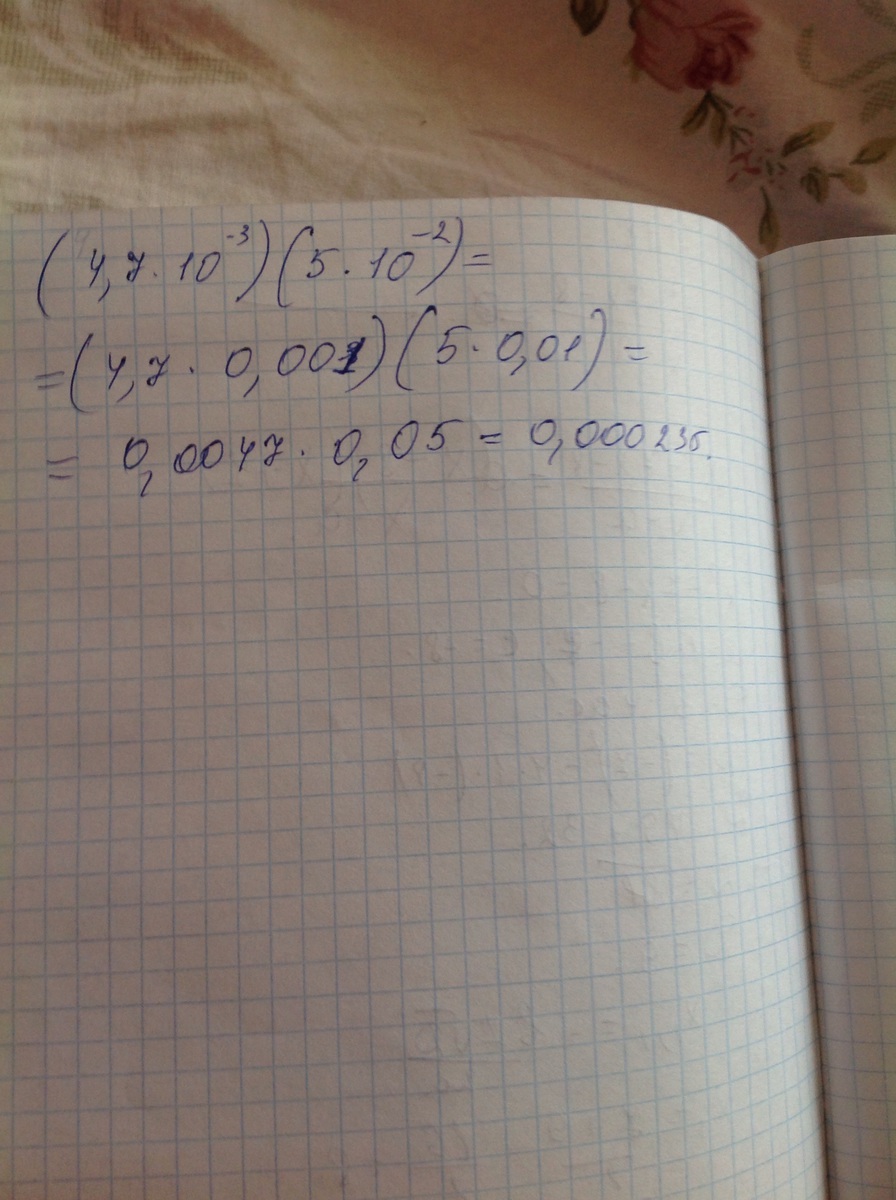 (4,7 · 10⁻³)(5 · 10⁻²) =
= (4,7 · 0,001)(5 · 0,01) =
= 0,0047 · 0,05 = 0,000235.